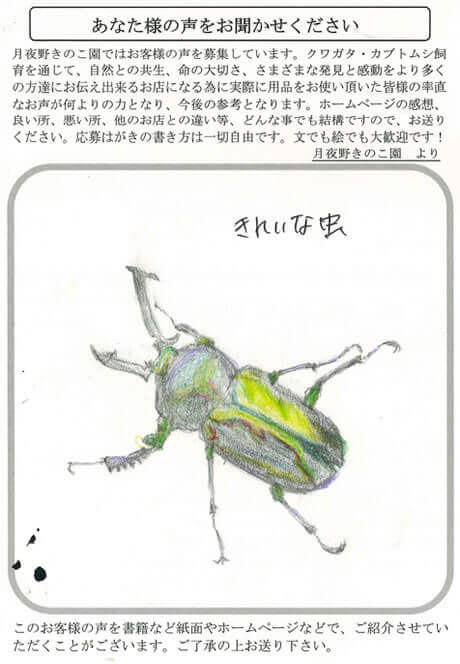 あなた様の声をお聞かせください
月夜野きのこ園ではお客様の声を募集しています。クワガタ・カブトムシ飼
育を通じて、自然との共生、命の大切さ、さまざまな発見と感動をより多く
の方達にお伝え出来るお店になる為に実際に用品をお使い頂いた皆様の率直
なお声が何よりの力となり、今後の参考となります。ホームページの感想、
良い所、悪い所、他のお店との違い等、どんな事でも結構ですので、お送り
ください。応募はがきの書き方は一切自由です。文でも絵でも大歓迎です！
月夜野きのこ園　より
きれいな虫
このお客様の声を書籍など紙面やホームページなどで、ご紹介させてい
ただくことがございます。ご了承の上お送り下さい。